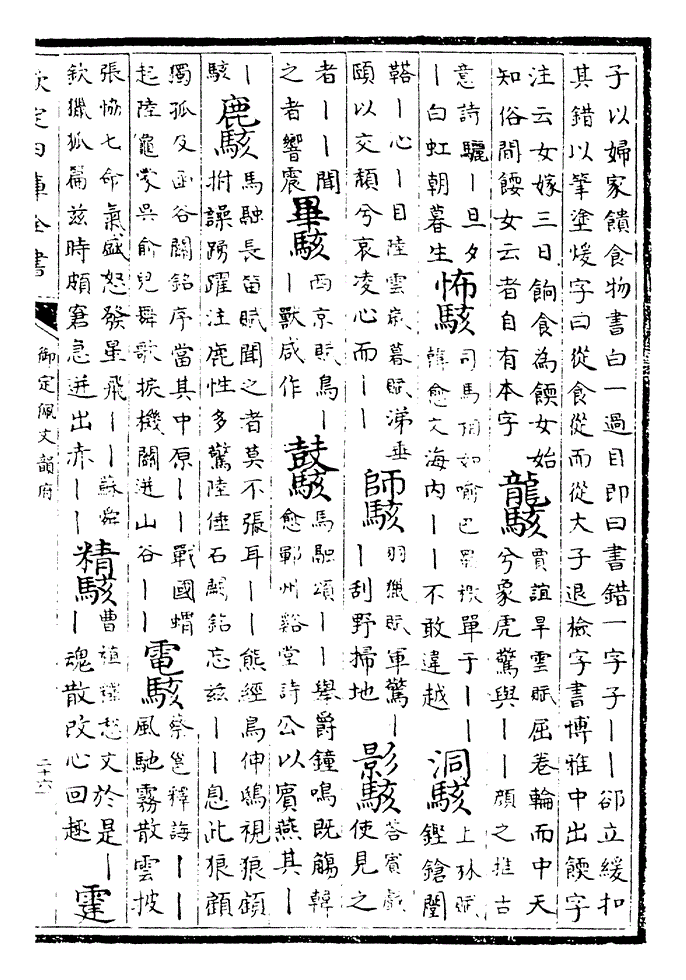 子以婦家饋食物書白一過目即曰書錯一字子丨丨郤立緩扣
其錯以筆塗煖字曰從食從而從大子退檢字書博雅中出餪字
注云女嫁三日餉食為餪女始
知俗間餪女云者自有本字
龍駭
賈誼旱雲賦屈卷輪而中天
兮象虎驚與丨丨顔之推古
意詩驪丨旦夕
丨白虹朝暮生
怖駭
司馬相如喻巴蜀檄單于丨丨
韓愈文海内丨丨不敢違越
洞駭
上林賦
鏗鎗闛
鞳丨心丨目陸雲歲暮賦涕垂
頤以交頽兮哀凌心而丨丨
師駭
羽獵賦軍驚丨
丨刮野掃地
影駭
答賓戲
使見之
者丨丨聞
之者響震
畢駭
西京賦鳥丨
丨獸咸作
鼓駭
馬融頌丨丨舉爵鐘鳴既觴韓
愈鄆州谿堂詩公以賓燕其丨
丨
駭
鹿駭
馬融長笛賦聞之者莫不張耳丨丨熊經鳥伸鴟視狼顧
拊譟踴躍注鹿性多驚陸倕石闕銘忘兹丨丨息此狼顧
獨孤及函谷關銘序當其中原丨丨戰國蝟
起陸吳俞兒舞歌挾機關迸山谷丨丨
電駭
蔡邕釋誨丨丨
風馳霧散雲披
張恊七命氣盛怒發星飛丨丨蘇舜
欽獵狐篇兹時頗窘急迸出赤丨丨
精駭
曹植釋愁文於是丨
丨魂散改心回趣
霆
欽定四庫全書
御定佩文韻府
二十六